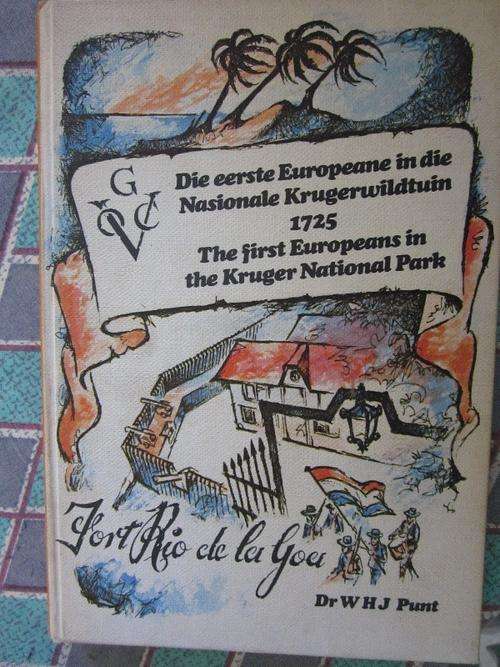 G
VOC
Die eerste Europeane in die
Nasionale Krugerwildtuin
1725
The first Europeans in
the Kruger National Park
Fort Rio de la Goa
Dr W H J Punt